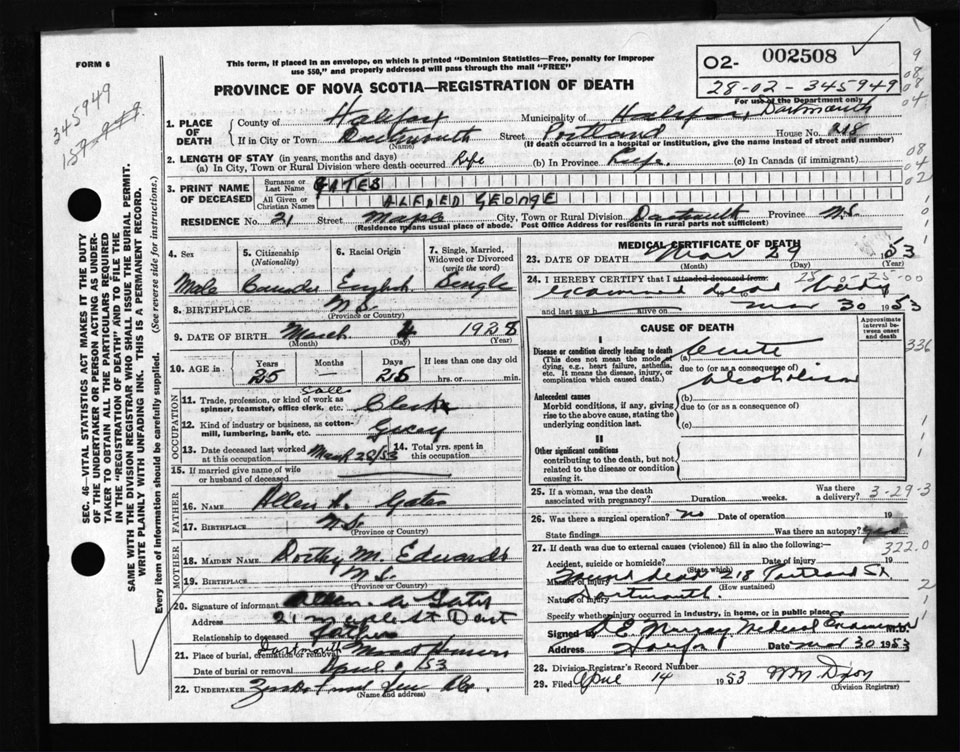 FORM 6
This form, if placed in an envelope, on which is printed "Dominion Statistics—Free, penalty for improper
use $50," and properly addressed will pass through the mail "FREE"
PROVINCE OF NOVA SCOTIA—REGISTRATION OF DEATH
02- 002508
28-02-345949
For use of the Department only
345949
1. PLACE OF DEATH County of Halifax Municipality of Halifax, Dartmouth
If in City or Town Dartmouth (Name) Street Portland House No. 218
(If death occurred in a hospital or institution, give the name instead of street and number)
2. LENGTH OF STAY (in years, months and days)
(a) In City, Town or Rural Division where death occurred Life (b) In Province Life (c) In Canada (if immigrant)
3. PRINT NAME OF DECEASED Surname or Last Name GATES
All Given or Christian Names ALFRED GEORGE
RESIDENCE No. 21 Street Maple City, Town or Rural Division Dartmouth Province N.S.
(Residence means usual place of abode. Post Office Address for residents in rural parts not sufficient)
SEC. 46—VITAL STATISTICS ACT MAKES IT THE DUTY
OF THE UNDERTAKER OR PERSON ACTING AS UNDER-
TAKER TO OBTAIN ALL THE PARTICULARS REQUIRED
IN THE "REGISTRATION OF DEATH" AND TO FILE THE
SAME WITH THE DIVISION REGISTRAR WHO SHALL ISSUE THE BURIAL PERMIT.
WRITE PLAINLY WITH UNFADING INK. THIS IS A PERMANENT RECORD.
Every item of information should be carefully supplied. (See reverse side for instructions.)
4. Sex Male
5. Citizenship (Nationality) Canada
6. Racial Origin English
7. Single, Married, Widowed or Divorced (write the word) Single
8. BIRTHPLACE N.S. (Province or Country)
9. DATE OF BIRTH March 4 1928
(Month) (Day) (Year)
10. AGE in Years 25 Months Days 25 If less than one day old hrs. or min.
OCCUPATION
11. Trade, profession, or kind of work as spinner, teamster, office clerk, etc. Sales Clerk
12. Kind of industry or business, as cotton-mill, lumbering, bank, etc.
13. Date deceased last worked at this occupation March 28/53
14. Total yrs. spent in this occupation
15. If married give name of wife or husband of deceased
FATHER
16. NAME Allen A. Gates
17. BIRTHPLACE N.S. (Province or Country)
MOTHER
18. MAIDEN NAME Dorthy M. Edwards
19. BIRTHPLACE N.S. (Province or Country)
20. Signature of informant Allan A Gates
Address 21 Maple St Dart
Relationship to deceased Father
21. Place of burial, cremation or removal Dartmouth Mount Hermon
Date of burial or removal April 1 53
22. UNDERTAKER
(Name and address)
MEDICAL CERTIFICATE OF DEATH
23. DATE OF DEATH Mar 29 1953
(Month) (Day) (Year)
24. I HEREBY CERTIFY that I attended deceased from: 25-0-25-00
examined dead body
and last saw h alive on Mar 30 1953
CAUSE OF DEATH
Approximate interval between onset and death
I
Disease or condition directly leading to death (a) Acute
(This does not mean the mode of dying, e.g., heart failure, asthenia, etc. It means the disease, injury, or complication which caused death.)
due to (or as a consequence of)
alcoholism
Antecedent causes
Morbid conditions, if any, giving rise to the above cause, stating the underlying condition last.
(b)
due to (or as a consequence of)
(c)
II
Other significant conditions
contributing to the death, but not related to the disease or condition causing it.
336
25. If a woman, was the death associated with pregnancy? Duration weeks. Was there a delivery?
3-29-3
26. Was there a surgical operation? no Date of operation 19
State findings Was there an autopsy? yes
322.0
27. If death was due to external causes (violence) fill in also the following:—
Accident, suicide or homicide? (State which) Date of injury 19
Manner of injury Found dead 218 Portland St (How sustained)
Nature of injury Dartmouth
Specify whether injury occurred in industry, in home, or in public place
Signed Murray Medical Examiner M.D.
Address Date Mar 30 1953
28. Division Registrar's Record Number
29. Filed April 14 1953 (Division Registrar)